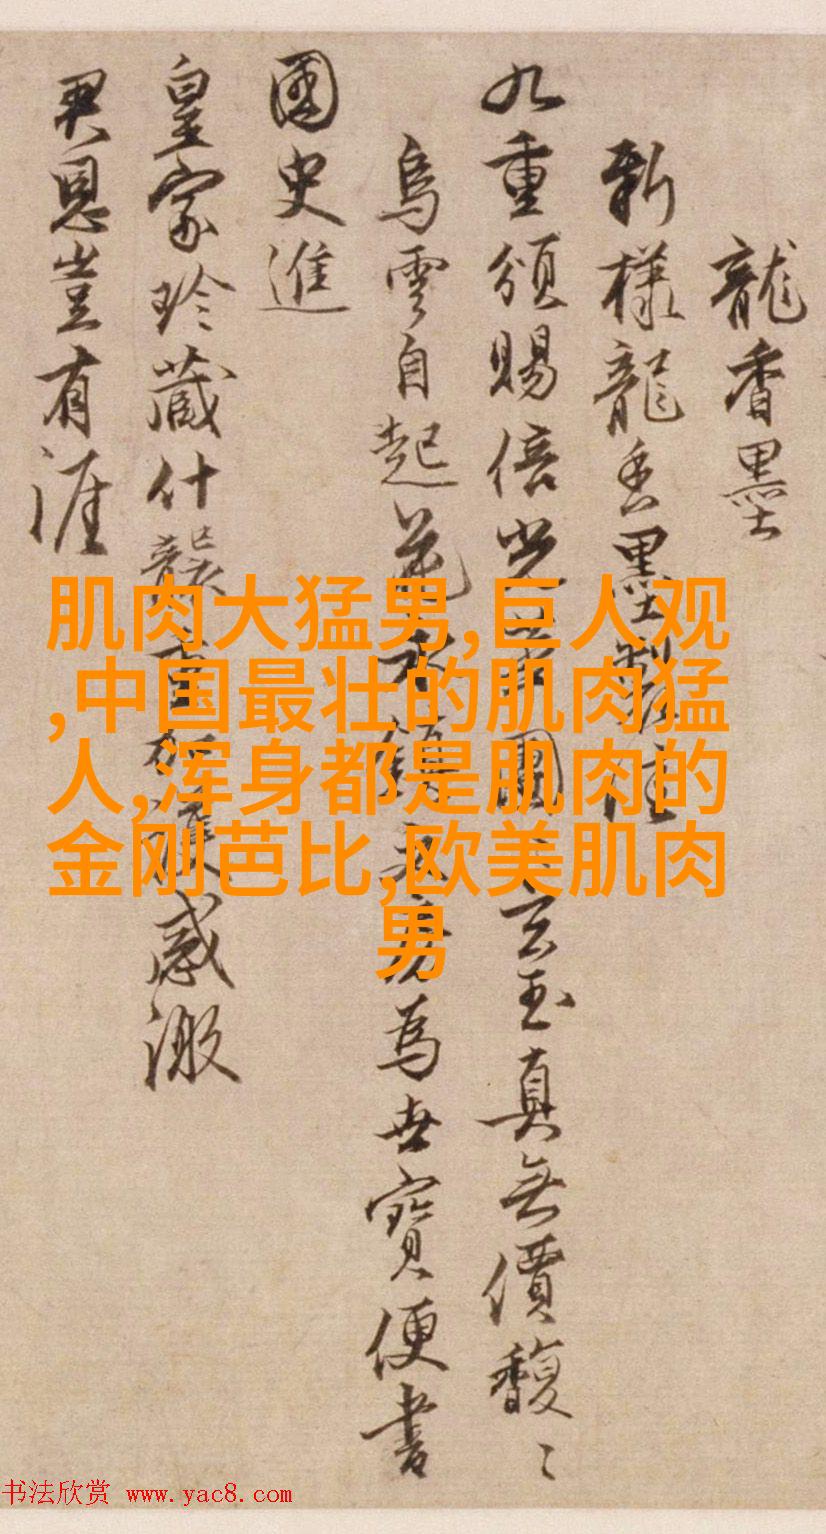 龍香墨
新樣龍香墨製佳
九重頒賜倍光華團玄玉真無價馥〻
烏雲自起花為世寶便書
國史進
皇家珍藏什襲感激
君恩豈有涯
肌肉大猛男,巨人观
,中国最壮的肌肉猛
人,浑身都是肌肉的
金刚芭比,欧美肌肉
男
书法欣赏 www.yac8.com